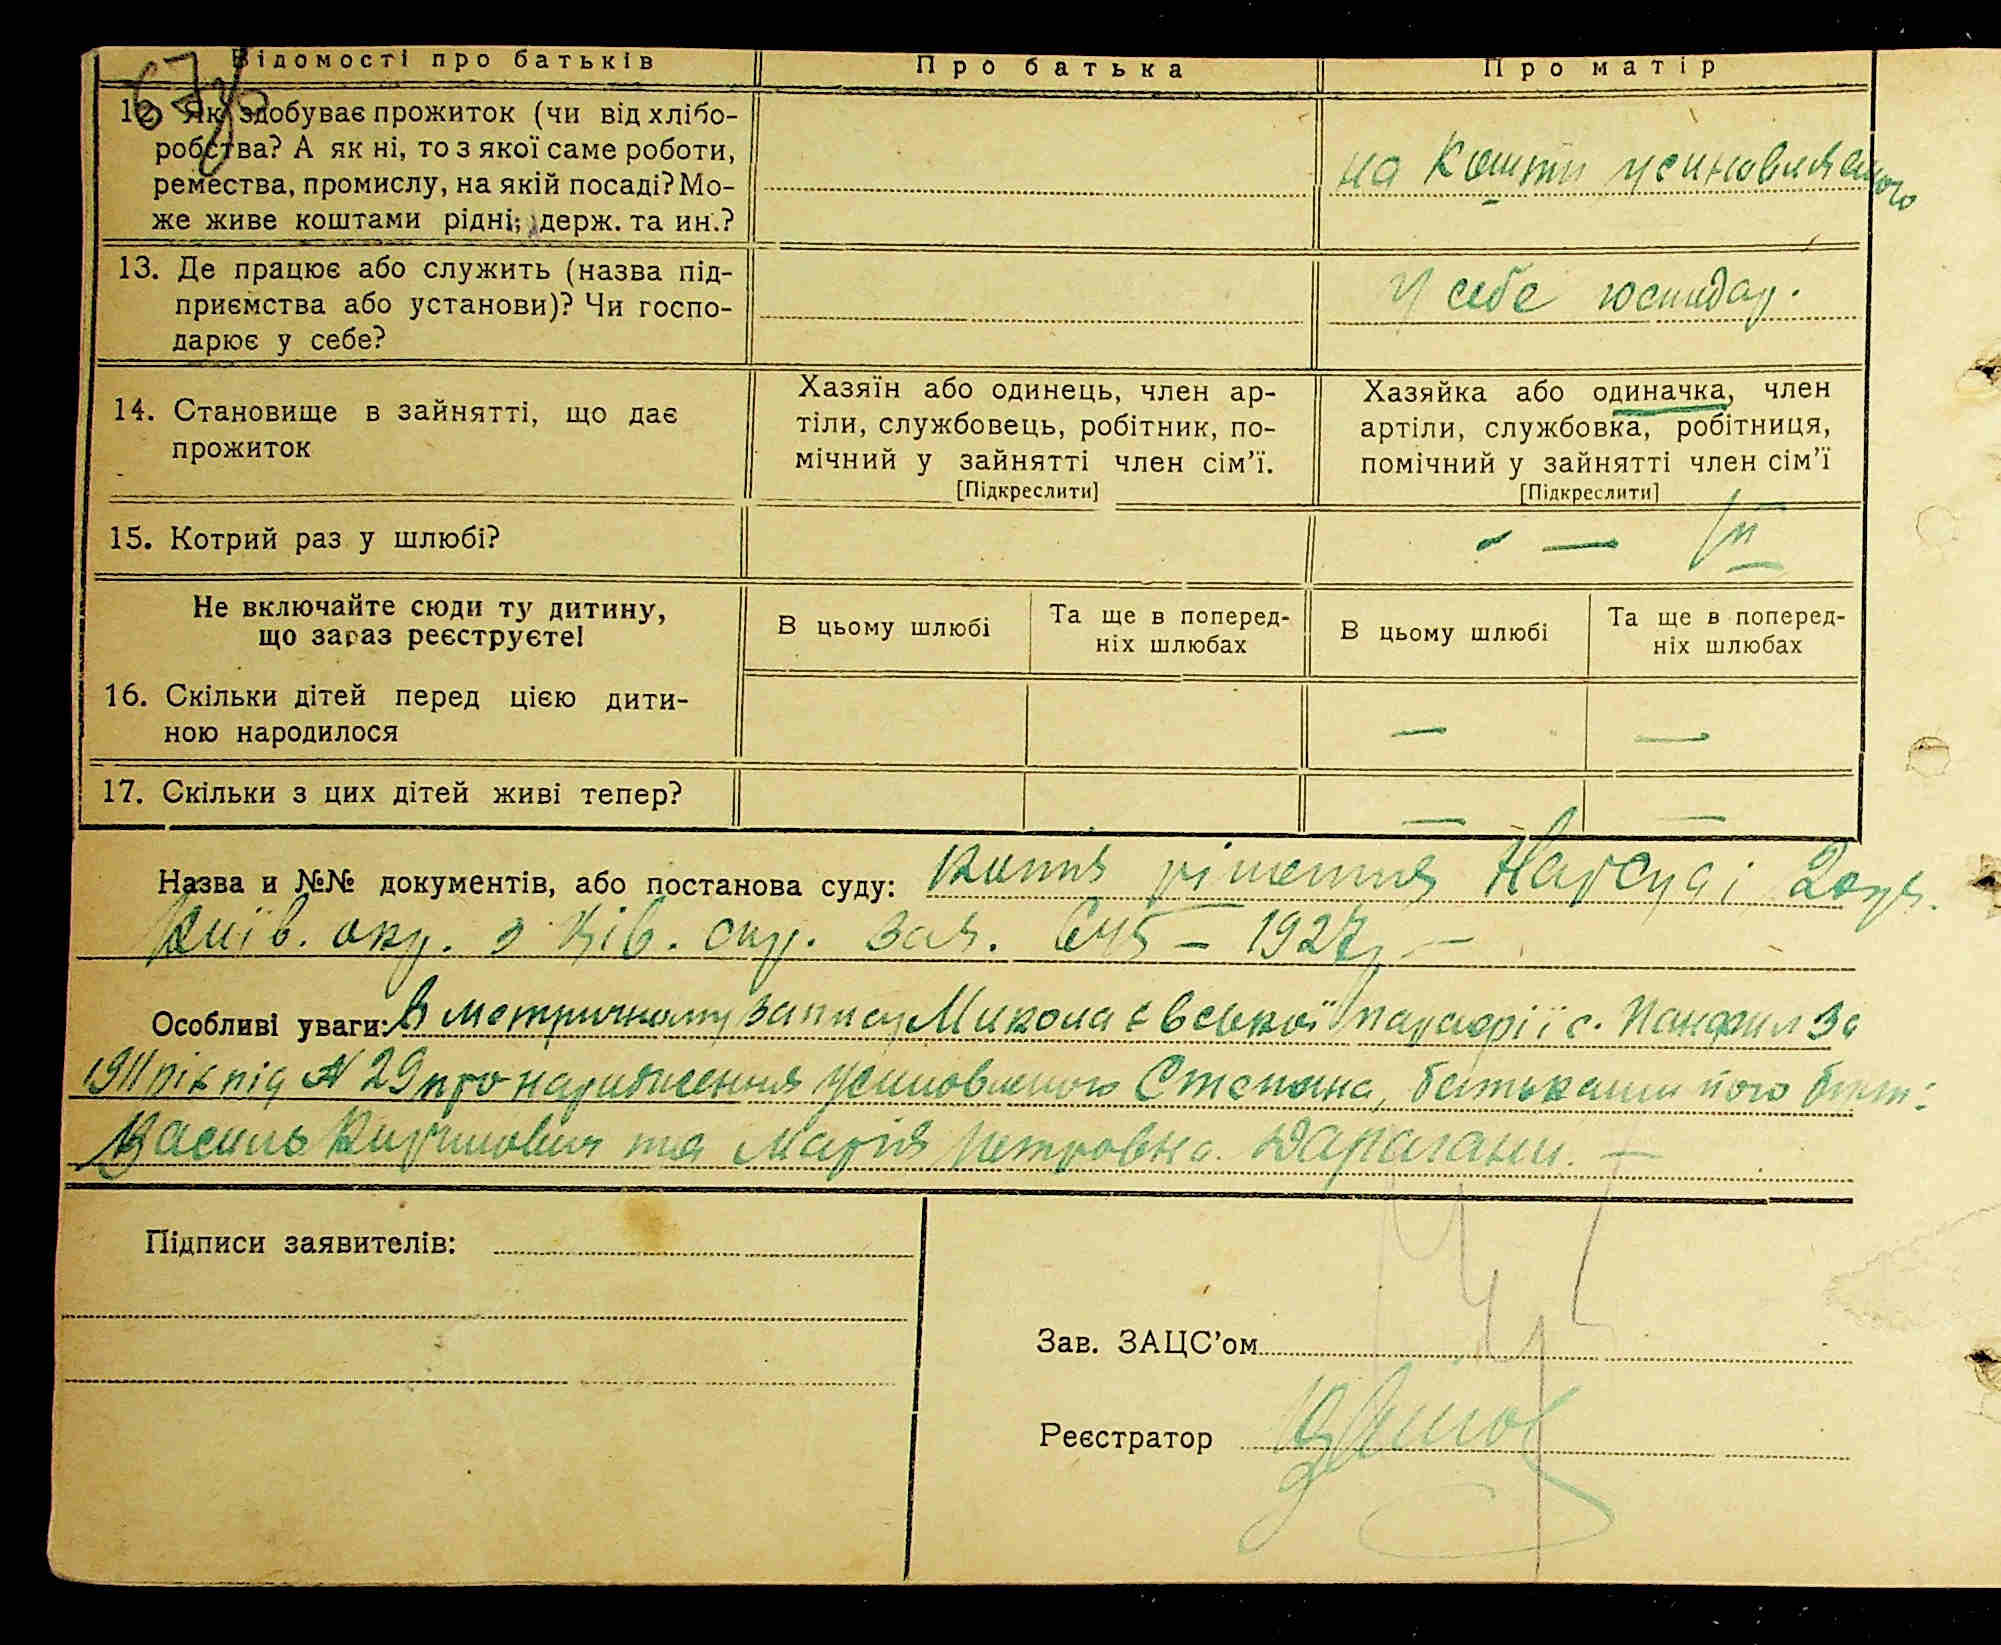 67
Відомості про батьків
Про батька
Про матір
12. Як здобуває прожиток (чи від хлібо-
робства? А як ні, то з якої саме роботи,
ремества, промислу, на якій посаді? Мо-
же живе коштами рідні; держ. та ин.?
на кошти усиновляємого
13. Де працює або служить (назва під-
приємства або установи)? Чи госпо-
дарює у себе?
У себе господар.
14. Становище в зайнятті, що дає
прожиток
Хазяїн або одинець, член ар-
тіли, службовець, робітник, по-
мічний у зайнятті член сім’ї.
[Підкреслити]
Хазяйка або одиначка, член
артіли, службовка, робітниця,
помічний у зайнятті член сім’ї
[Підкреслити]
15. Котрий раз у шлюбі?
— II
Не включайте сюди ту дитину,
що зараз реєструєте!
В цьому шлюбі
Та ще в поперед-
ніх шлюбах
В цьому шлюбі
Та ще в поперед-
ніх шлюбах
16. Скільки дітей перед цією дити-
ною народилося
— —
17. Скільки з цих дітей живі тепер?
— —
Назва и №№ документів, або постанова суду: рішення Нарсуда
Київ. окр. з Ців. спр. 1927 р. —
Особливі уваги: В метричному запису Миколаєвської парафії с. Панфил за
1911 рік під № 29 про народження усиновленого Степана, батьками його бул:
Василь Кирилович та Марія Петровна Дарагани. —
Підписи заявителів:
Зав. ЗАЦС’ом
Реєстратор